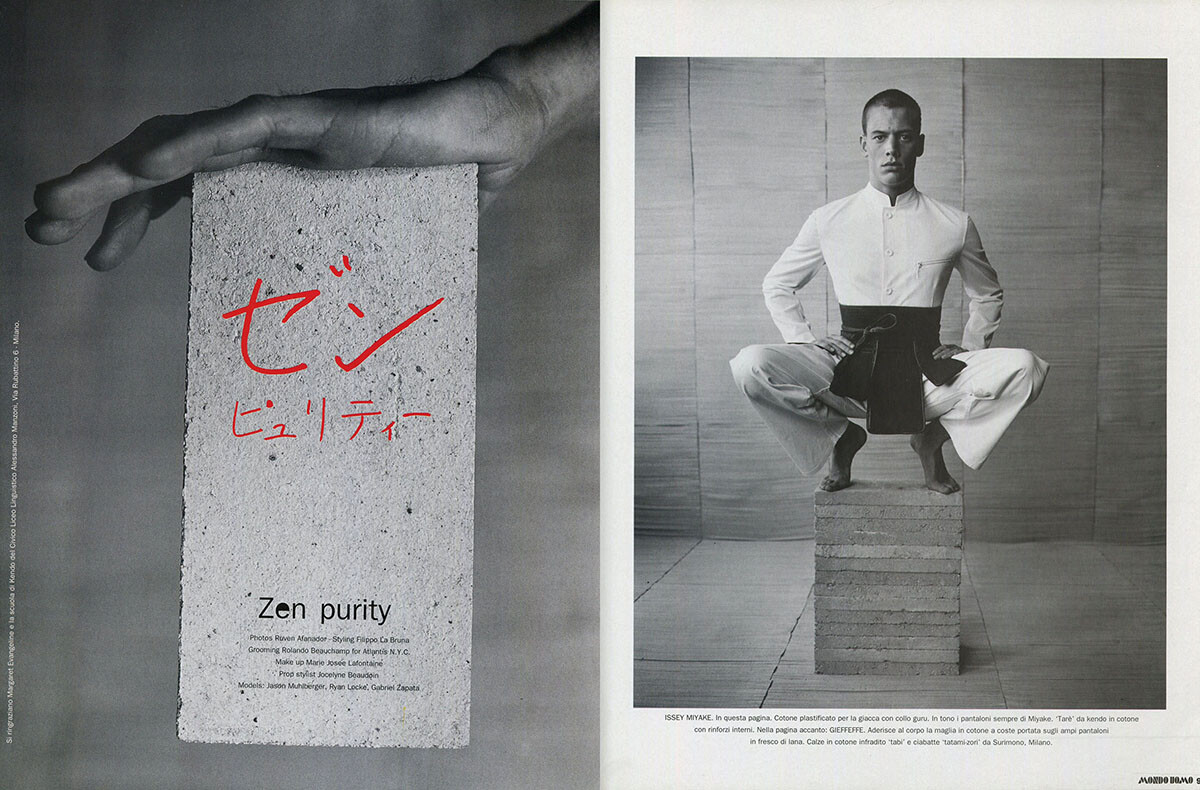 Si ringraziano Margaret Evangeline e la scuola di Kendo del Civico Liceo Linguistico Alessandro Manzoni, Via Rubattino 6 - Milano.
ゼン
ピュリティー
Zen purity
Photos Ruven Afanador - Styling Filippo La Bruna
Grooming Rolando Beauchamp for Atlantis N.Y.C.
Make up Marie Josée Lafontaine
Prop stylist Jocelyne Beaudoin
Models: Jason Muhlberger, Ryan Locke, Gabriel Zapata
ISSEY MIYAKE. In questa pagina. Cotone plastificato per la giacca con collo guru. In tono i pantaloni sempre di Miyake. 'Tarè' da kendo in cotone
con rinforzi interni. Nella pagina accanto: GIEFFEFFE. Aderisce al corpo la maglia in cotone a coste portata sugli ampi pantaloni
in fresco di lana. Calze in cotone infradito 'tabi' e ciabatte 'tatami-zori' da Surimono, Milano.
MONDO UOMO 9